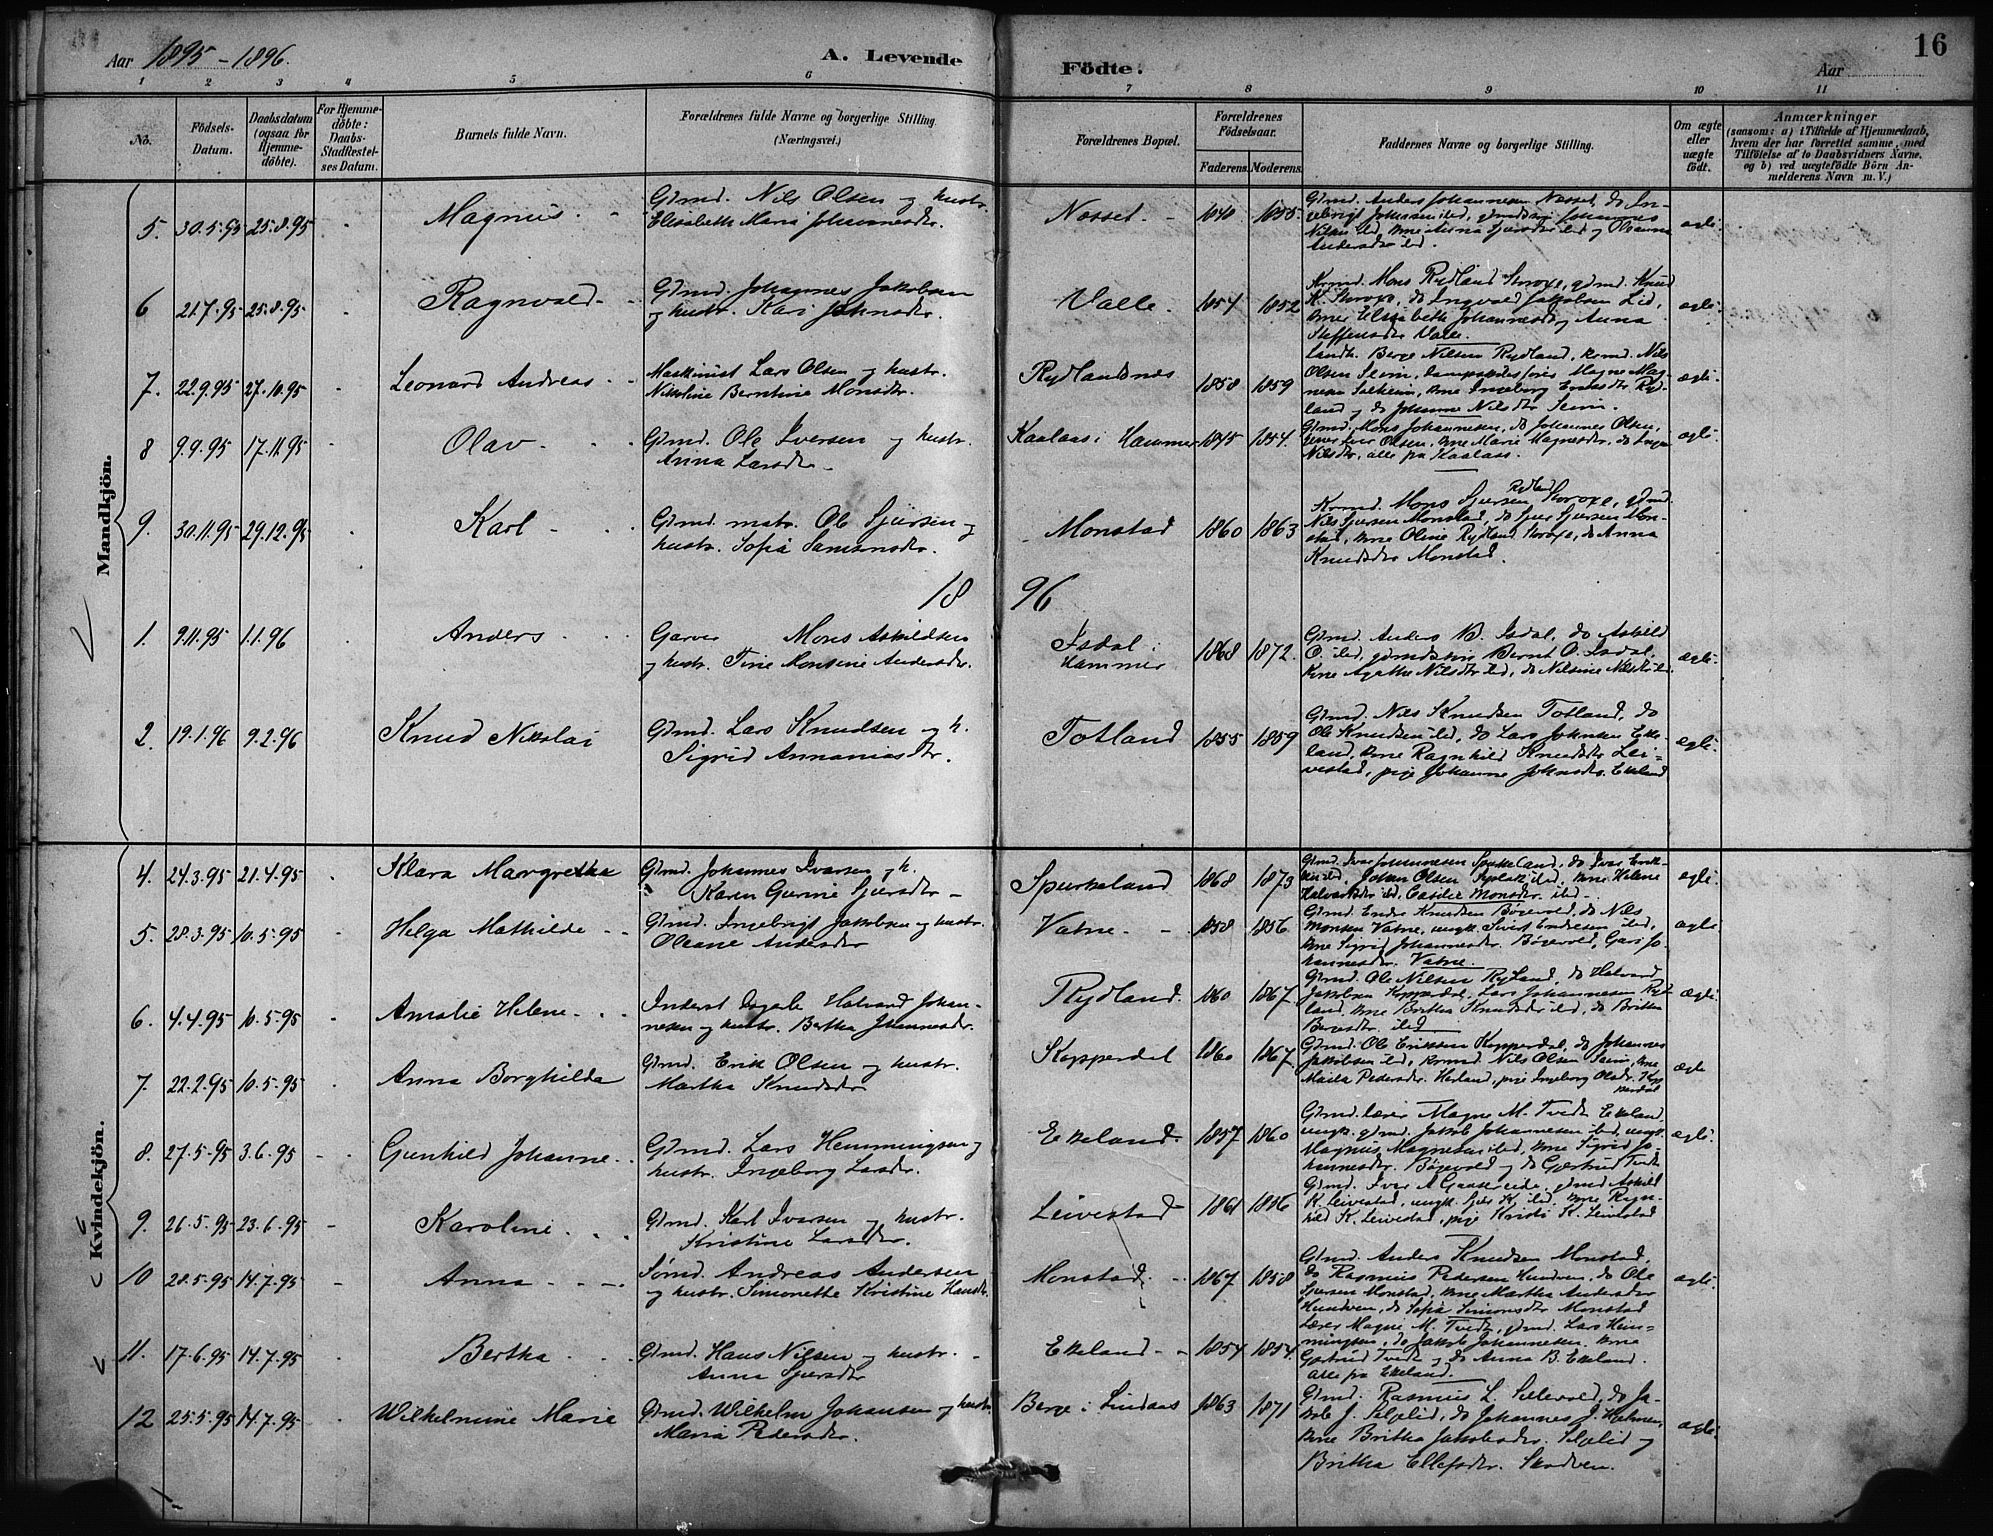 Aar 1895-1896.
A. Levende Födte.
Aar
16
1 2 3 4 5 6 7 8 9 10 11
No.
Födsels-
Datum.
Daabsdatum
(ogsaa for
Hjemme-
döbte).
For Hjemme-
döbte:
Daabs-
Stadfæstel-
ses Datum.
Barnets fulde Navn.
Forældrenes fulde Navne og borgerlige Stilling.
(Næringsvei.)
Forældrenes Bopæl.
Forældrenes
Födselsaar.
Faderens. Moderens.
Faddernes Navne og borgerlige Stilling.
Om ægte
eller
uægte
födt.
Anmærkninger
(saasom: a) i Tilfælde af Hjemmedaab,
hvem der har forrettet samme, med
Tilföielse af to Daabsvidners Navne,
og b) ved uægtefödte Börn An-
melderens Navn m. V.)
Mandkjön.
5. 30.5.95 25.8.95 Magnus
Gbmd. Nils Olsen og hustr.
Elisabeth Maria Johannesdtr.
Nesset 1840 1855
Gbmd. Anders Johannesen Nesset, do In-
gebrigt Johannesen ibd, gbmdssøn Johannes
Nilsen ibd, kone Anna Sjursdtr ibd og Oleanna
Andersdtr ibd.
ægte
6 21.7.95 25.8.95 Ragnvald
Gbmd. Johannes Jakobsen
og hustr. Kari Johnsdtr.
Valle. 1854 1852
Kormd. Mons Rydland Storoxe, gbmd. Knud
K. Storoxe, do Ingvald Jakobsen Lid,
kone Elisabeth Johannesdtr og Anna
Steffensdtr Valle.
ægte
7. 22.9.95 27.10.95 Leonard Andreas
Maskinist Lars Olsen og hustr.
Nikoline Berntine Monsdtr.
Rydlandsnes 1858 1859
Landh. Berge Nilsen Rydland, kormd. Nils
Olsen Seim, dampskibsfører Magne Mag-
nesen Sætheim, kone Ingeborg Eriksdtr Ryd-
land og do Johanne Nilsdtr Seim.
ægte
8 9.9.95 17.11.95 Olav
Gbmd. Ole Iversen og hustr.
Anna Larsdtr
Kaalaas i Hammer 1845 1854.
Gbmd. Mons Johannesen, do Johannes Olsen,
Olsen, kone Marie Magnesdtr, do
Nilsdtr, alle paa Kaalaas.
ægte
9. 30.11.95 29.12.95 Karl
Gbmd. matr. Ole Sjursen og
hustr. Sofia Samsonsdtr.
Monstad 1860 1863
Kormd. Mons Sjursen Rydland Storoxe, gbmd.
Nils Sjursen Monstad, do Sjur Sjursen Mon-
stad, kone Oline Rydland Storoxe, do Anna
Knudsdtr Monstad.
1896
1. 9.11.95 1.1.96 Anders
Garver Mons Askildsen
og hustr. Tine Monsine Andersdtr.
Isdal i
Hammer 1868 1872.
Gbmd. Anders B. Isdal, do Askild
O. ibd, gbmdssøn Bernt O. Isdal,
kone Agathe Nilsdtr ibd, do Nilsine Nilsdtr ibd.
ægte
2. 19.1.96 9.2.96 Knud Nikolai
Gbmd. Lars Knudsen og h.
Sigrid Annaniasdtr.
Totland 1855 1859
Gbmd. Nils Knudsen Totland, do
Ole Knudsen ibd, do Lars Johnsen Eke-
land, kone Ragnhild Knudsdtr Lei-
vestad, pige Johanne Johnsdtr. Ekeland
ægte
Kvindekjön.
4. 24.3.95 21.4.95 Klara Margretha
Gbmd. Johannes Ivarsen og h.
Karen Gurine Sjursdtr
Spurkeland 1868 1873
Gbmd. Ivar Johannesen Spurkeland, do Ivar Erik-
sen ibd, Johan Olsen ibd, kone Helene
Halvorsdtr ibd, Monsdtr ibd
ægte
5. 28.3.95 10.5.95 Helga Mathilde
Gbmd. Ingebrigt Jakobsen og hustr.
Oleane Andersdtr
Vatne 1858 1856
Gbmd. Endre Knudsen Bøgevold, do Nils
Monsen Vatne, ungk. Sivert Endresen ibd,
kone Sigrid Johannesdtr. Bøgevold, Guri Jo-
hannesdtr. Vatne.
ægte
6. 4.4.95 10.5.95 Amalie Helene
Inderst Halvard Johan-
nesen og hustr. Bertha Johannesdtr.
Rydland 1860 1867.
Gbmd. Ole Nilsen Rydland, do Halvard
Jakobsen Kopperdal, Lars Johannesen Ryd-
land, kone Brithe Knudsdtr ibd, do Britha
Bergesdtr. ibd
ægte
7. 22.2.95 10.5.95 Anna Borghilda
Gbmd. Erik Olsen og hustr.
Martha Knudsdtr
Kopperdal 1860 1867.
Gbmd. Ole Eriksen Kopperdal, do Johannes
Jakobsen ibd, kormd. Nils Olsen Seim, kone
Pedersdtr. Herland, pige Ingeborg Olsdtr. Kop-
perdal
ægte
8. 27.5.95 3.6.95 Gunhild Johanne
Gbmd. Lars Hemmingsen og
hustr. Ingeborg Larsdtr.
Ekeland 1857 1860
Gbmd. lærer Magne M. Tvedt Ekeland
ungk. gbmd. Jakob Johannesen ibd, ungk.
Magnus Magnesen ibd, kone Sigrid Jo-
hannesdtr. Bøgevold og do Gjertrud Tvedt
ægte
9. 26.5.95 23.6.95 Karoline
Gbmd. Karl Ivarsen og hustr.
Kristine Larsdtr.
Leivestad 1861 1856
Gbmd. Iver A. , gbmd. Askild
K. Leivestad, ungk. Sjur K. ibd, kone Ragn-
hild K. Leivestad, pige Kristi K. Leivestad
10 28.5.95 14.7.95 Anna
Gbmd. Andreas Andersen
og hustr. Simonette Kristine Hansdtr.
Monstad 1867 1858
Gbmd. Anders Knudsen Monstad,
do Rasmus Pedersen Hundven, do Ole
Sjursen Monstad, kone Martha Andersdtr
Hundven, do Sofia Simonsdtr Monstad
ægte
11. 17.6.95 14.7.95 Bertha
Gbmd. Hans Nilsen og hustr.
Anna Sjursdtr
Ekeland 1854 1854.
Lærer Magne M. Tvedt, gbmd. Lars Hem-
mingsen, do Jakob Johannesen kone
Gjertrud Tvedt og do Anna B. Ekeland.
alle paa Ekeland.
12 25.5.95 14.7.95 Wilhelmine Marie
Gbmd. Wilhelm Johansen og hustr.
Maria Pedersdtr.
Berge i Lindaas 1863 1871
Gbmd. Rasmus L. Sellevold, do Ja-
kob J. Seljelid, do Johannes J. Hjelmen,
kone Britha Jakobsdtr. Seljelid og
Britha Ellefsdtr. Skodven.
ægte